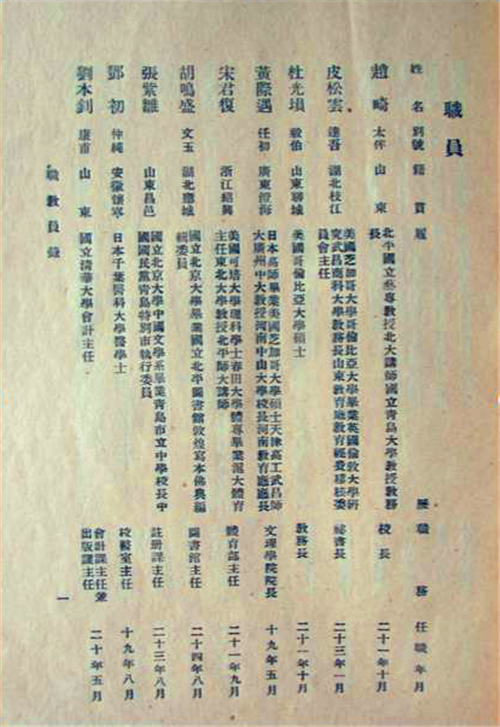 職員
姓名 別號 籍貫 履歷 職務 任職年月
趙畸 太侔 山東 北平國立藝專教授北大講師國立青島大學教授教務長 校長 二十一年十月
皮松雲 達吾 湖北枝江 美國芝加哥大學哥倫比亞大學畢業英國倫敦大學研究武昌商科大學教務長山東教育廳教育經費稽核委員會主任 祕書長 二十三年一月
杜光塤 毅伯 山東聊城 美國哥倫比亞大學碩士 教務長 二十一年十月
黃際遇 任初 廣東澄海 日本高師畢業美國芝加哥大學碩士天津高工武昌師大廣州中大教授河南中山大學校長河南教育廳廳長 文理學院院長 十九年五月
宋君復 浙江紹興 美國可培大學理科學士春田大學體專畢業滬大體育主任東北大學教授北平師大講師 體育部主任 二十一年九月
胡鳴盛 文玉 湖北應城 國立北京大學畢業國立北平圖書館敦煌寫本佛典編輯委員 圖書館主任 二十四年八月
張紫雛 山東昌邑 國立北京大學中國文學系畢業青島市立中學校長中國國民黨青島特別市執行委員 註册課主任 二十三年八月
鄧初 仲純 安徽懷寧 日本千葉醫科大學醫學士 校醫室主任 十九年八月
劉本釗 康甫 山東 國立清華大學會計主任 會計課主任兼出版課主任 二十年五月
職教員錄 一